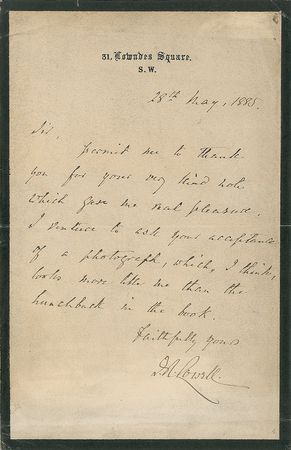 31, Lowndes Square.
S.W.
28th May, 1885.
Sir,
permit me to thank
you for your very kind note
which gave me real pleasure.
I venture to ask your acceptance
of a photograph, which, I think,
looks more like me than the
hunchback in the book.
Faithfully yours
J.R. Lowell.